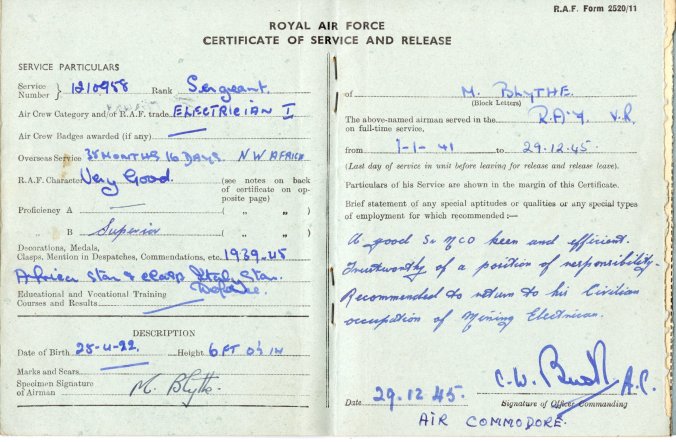 R.A.F. Form 2520/11
ROYAL AIR FORCE
CERTIFICATE OF SERVICE AND RELEASE
SERVICE PARTICULARS
Service Number } 1210958 Rank Sergeant.
Air Crew Category and/or R.A.F. trade ELECTRICIAN I
Air Crew Badges awarded (if any)
Overseas Service 35 MONTHS 16 DAYS N W AFRICA
R.A.F. Character Very Good. (see notes on back of certificate on opposite page)
Proficiency A — ( „ „ )
„ B Superior ( „ „ )
Decorations, Medals,
Clasps, Mention in Despatches, Commendations, etc. 1939-45
Africa Star & clasp Italy Star.
Defence.
Educational and Vocational Training
Courses and Results
DESCRIPTION
Date of Birth 25-4-22. Height 6 FT 0½ IN
Marks and Scars
Specimen Signature of Airman M. Blythe.
of M. BLYTHE.
(Block Letters)
The above-named airman served in the R.A.F. V.R
on full-time service,
from 1-1-41 to 29.12.45.
(Last day of service in unit before leaving for release and release leave).
Particulars of his Service are shown in the margin of this Certificate.
Brief statement of any special aptitudes or qualities or any special types
of employment for which recommended :—
A good Sn NCO keen and efficient.
Trustworthy of a position of responsibility.
Recommended to return to his Civilian
occupation of Mining Electrician.
Date 29.12.45. C.W. A.C.
Signature of Officer Commanding
AIR COMMODORE.